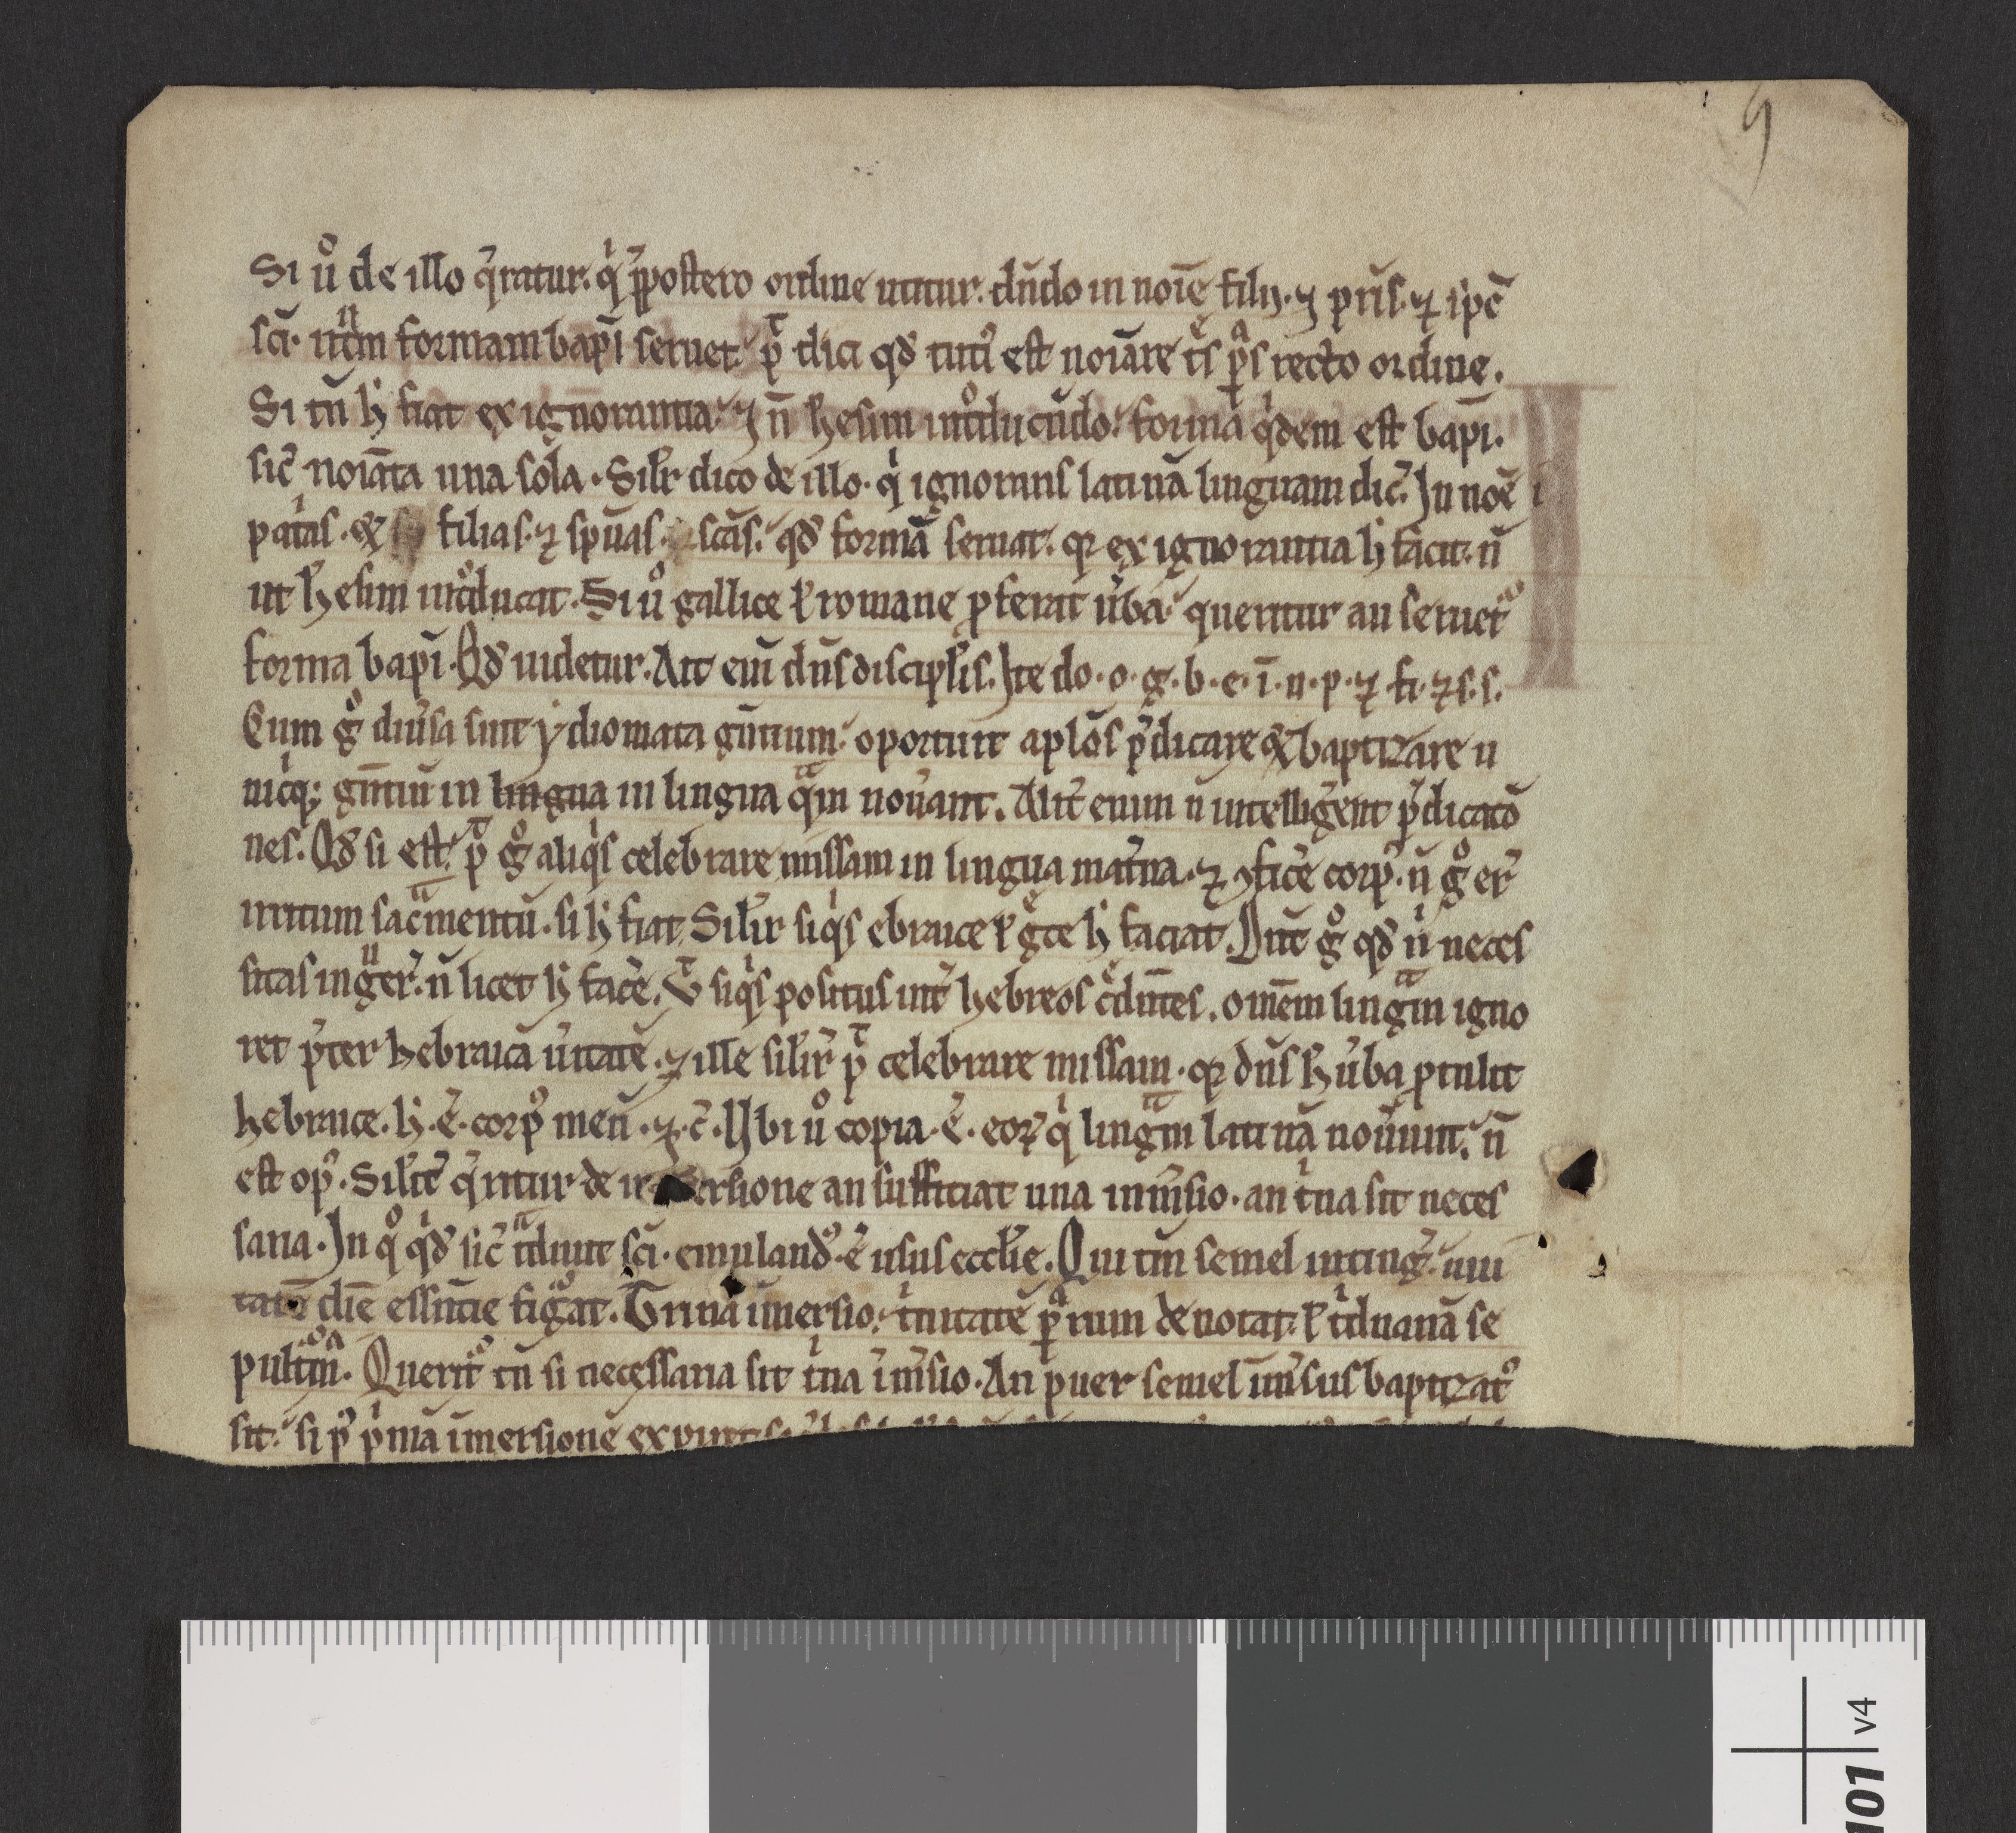 9
Si u̾o de illo q̄ratur. qͥ p̄postero ordine utitur. dn̄do in noīe filii. ⁊ pr̄is. ⁊ sp̄c
sc̄i. utͫm formam bap̄i seruet. pͭ dici qd̓ tuti᷒ est noīare tͤs pͣs recto ordine.
Si tn̄ h̓ fiat ex ignorantia. ⁊ n̄ h̓esim int̊ducēdo. forma qͥdem est bap̄i.
sic̄ noīata una sola. Silr̄ dico de illo. qͥ ignorans latinā linguam dic̄. In noē
patͥas. & filias. ⁊ sp̄uas. sc̄as. qd̓ formā seruat. qꝛ ex ignorantia h̓ facit. n̄
ut h̓esim int̊ducat. Si u̾o gallice ł romane ꝓferat u̾ba. queritur an seruet᷒
forma bap̄i. Qd̓ uidetur. Ait em̄ dn̄s discipl̓is. Ite do. o. g. b. e. ī. n. p. ⁊ fi. ⁊ s. s.
Cum gͦ diu̾sa sint ydiomata gn̄tium. oportuit apl̄os p̄dicare & baptizare u
nicͥqꝫ gn̄tiū in lingua in lingua qͣm nou̾ant. Alit̾ enim n̄ intellig̾ent p̄dicatō
nes. Qd̓ si est. pͭ gͦ aliqͥs celebrare missam in lingua mat̾na. ⁊ ꝯfic̾e corp᷒. n̄ gͦ er̄
irritum sacͣmentū. si h̓ fiat. Silir̄ siqͥs ebraice ł gͤce h̓ faciat. Dn̄t gͦ qd̓ nͥ neces
sitas ingͣer̄. n̄ licet h̓ fac̾e. Vͭ siqͥs positus int̾ hebreos cͤdn̄tes. omēm lingͣm igno
ret p̄ter hebraicā u̾itatē. ⁊ ille silir̄ pͭ celebrare missam. qꝛ dn̄s h̓ u̾ba ꝓtulit
hebraice. h̓. ē. corp᷒ meū. ⁊. c̄. Ubi u̾o copia. ē. eoꝝ qͥ lingͣm latinā nou̾unt. n̄
est op᷒. Silit̾ q̄ritur de i ersione an sufficiat una īm̾sio. an tͥna sit neces
saria. In qͦ qd̓ sic̄ tͣdunt sc̄i. emuland᷒. ē usus eccl̄ie. Qui tm̄ semel inting̾. uni
tatē diē essn̄tie figͦat. Trina īmersio. tͥnitatē pͣrum denotat. ł tͥduanā se
pultͫā. Querit᷒ tn̄ si necessaria sit tͥna īm̾sio. An puer semel īm̾sus baptizat᷒
sit. si p᷒ pͥmā īmersionē expiret